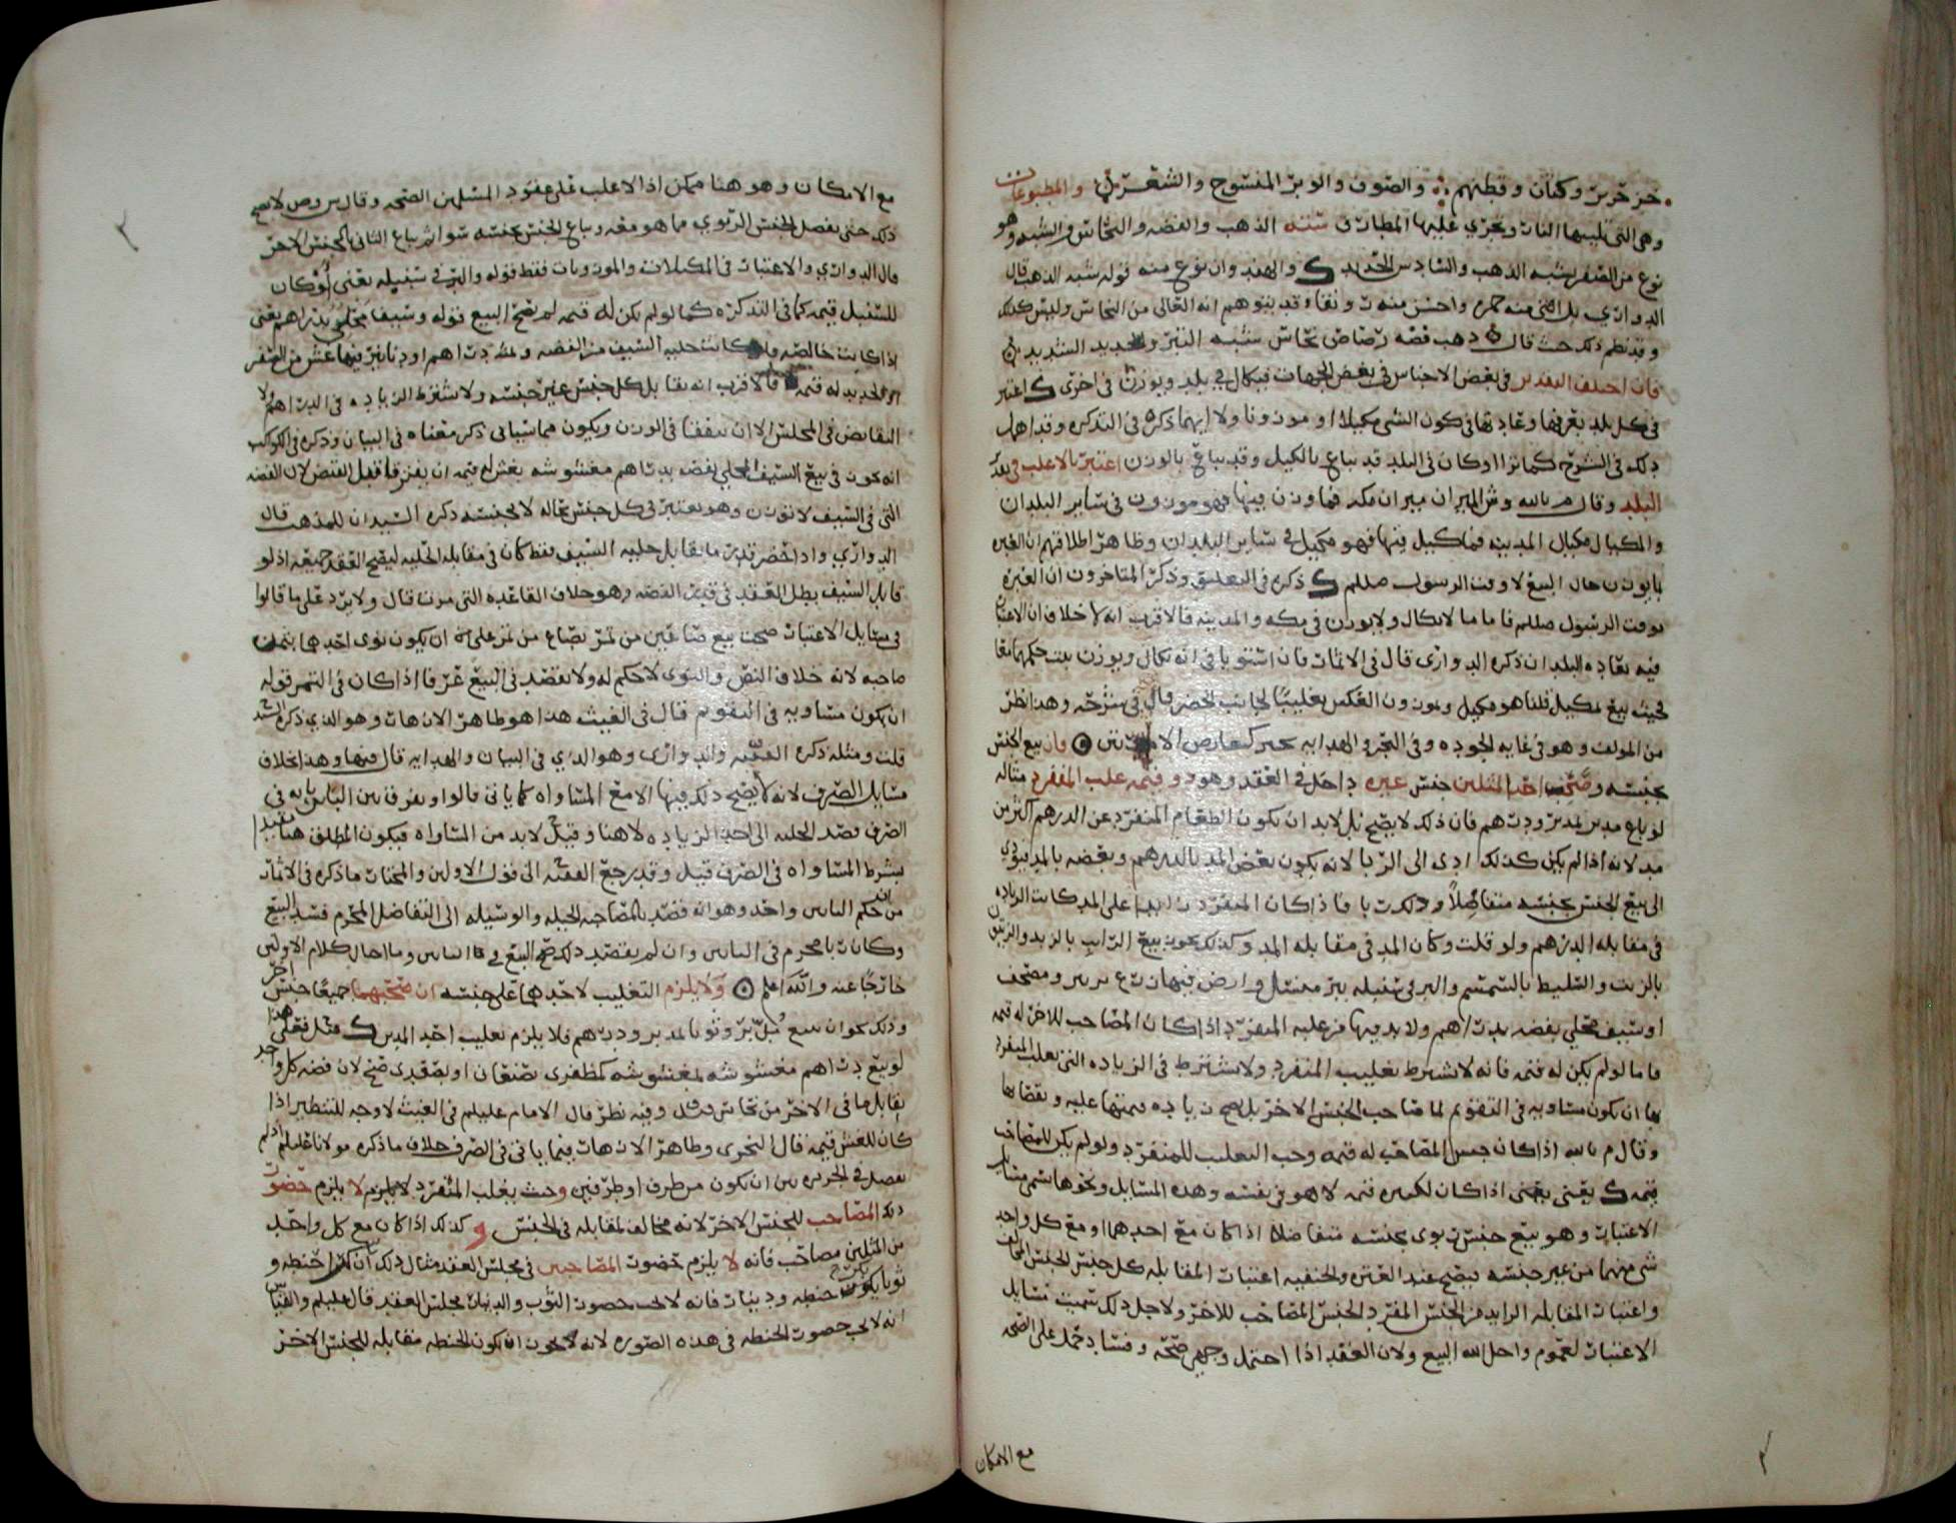 خز حرير وكتان وقطنهم والصوف والوبر المنسوج والشعر والمطبوعات
وهي التي تلينها النار ويجري عليها المطارق ستة الذهب والفضه والنحاس والشبه وهو
نوع من الصفر يشبه الذهب والسادس الحديد والهند وان نوع منه قوله شبه الذهب قال
الدواري بل اصفى منه حمره واحسن منه وقد يتوهم انه العالي من النحاس وليس كذلك
وقد نظم ذلك حيث قال ذهب فضه رصاص نحاس شبه التبر والحديد الشديد
فان اختلف التقدير في بعض الاجناس في بعض الجهات فيكال في بلد ويوزن في اخرى اعتبر
في كل بلد بعرفها وعادتها في كون الشي مكيلا او موزونا ولا ايهما ذكره في التذكره وقد اهمل
ذلك في الشرح كما ترا اذ كان في البلد قد يباع بالكيل وقد يباع بالوزن اعتبر بالاغلب في تلك
البلد وقال م بالله وش الميزان ميزان مكه فما وزن فيها فهو موزون في ساير البلدان
والمكيال مكيال المدينه فما كيل فيها فهو مكيل في ساير البلدان وظاهر اطلاقهم ان العبره
بالوزن حال البيع لا وقت الرسول صللم ذكره في التعليق وذكر المتاخرون ان العبره
بوقت الرسول صللم فاما ما لا يكال ولا يوزن في مكه والمدينه فالاقرب انه لا خلاف ان الاعتبار
فيه بعادة البلدان ذكره الدواري قال في الاثمار فان استويا في انه يكال ويوزن ثبت حكمهما معا
فحيث بيع بمكيل قلنا هو مكيل وبموزون العكس تغليبا لجانب الحضر قال في شرحه وهذا نظر
من المولف وهو في غاية الجوده وفي البحر والهدايه يخير كتعارض الامارتين فان بيع الجنس
بجنسه وصحب احد المثلين جنس غيره داخل في العقد وهو ذو قيمه غلب المنفرد مثاله
لو باع مدبر بمدبر ودرهم فان ذلك لا يصح بل لابد ان يكون الطعام المنفرد عن الدرهم اكثر من
مد لانه اذا لم يكن كذلك ادى الى الربا لانه يكون بعض المد بالدرهم وبعضه بالمد فيودي
الى بيع الجنس بجنسه متفاضلا وذلك ربا فاذا كان المنفرد زايدا على المد كانت الزياده
في مقابله الدرهم ولو قلت وكان المد في مقابله المد وكذلك يجوز بيع الرايب بالزبد والزيتون
بالزيت والسليط بالسمسم والبر في سنبله ببر منسل وارض فيها زرع ببر ومصحف
او سيف محلى بفضه بدراهم ولا بد فيها من غلبه المنفرد اذا كان المصاحب للاخر له قيمه
فاما لو لم يكن له قيمه فانه لا يشترط تغليب المنفرد ولا يشترط في الزياده التي يغلب المنفرد
بها ان يكون مساويه في التقويم لما صاحب الجنس الاخر بل يصح زياده قيمتها عليه ونقصانها
وقال م بالله اذا كان جنس المصاحب له قيمه وجب التغليب للمنفرد ولو لم يكن للمصاحب
قيمه يعني يعني اذا كان لكثيره قيمه لا هو في نفسه وهذه المسايل ونحوها تسمى مسايل
الاعتبار وهو بيع جنس ربوي بجنسه متفاضلا اذا كان مع احدهما او مع كل واحد
شي منهما من غير جنسه فيصح عند العتره والحنفيه اعتبارا لمقابله كل جنس للجنس المخالف
واعتبار المقابله الزايد من الجنس المنفرد للجنس المصاحب للاخر ولاجل ذلك سميت مسايل
الاعتبار لعموم واحل الله البيع ولان العقد اذا احتمل وجهي صحه وفساد حمل على الصحه
مع الامكان
مع الامكان وهو هنا ممكن اذ الاغلب على عقود المسلمين الصحه وقال ن وص لا يصح
ذلك حتى يفصل الجنس الربوي مما هو معه ويباع الجنس بجنسه سوا ثم يباع الثاني بالجنس الاخر
قال الدواري والاعتبار في المكيلات والموزونات فقط قوله والبر في سنبله يعني لو كان
للسنبل قيمه كما في التذكره كما لو لم يكن له قيمه لم يصح البيع قوله وسيف محلى بدراهم يعني
اذا كانت خالصه وكانت حليه السيف من الفضه ومثله دراهم او دنانير فيها غش من الصفر
او الحديد له قيمه فالاقرب انه يقابل كل جنس غير جنسه ولا يشترط الزياده في الدراهم ولا
التقابض في المجلس الا ان يتفقا في الوزن ويكون مما سياتي ذكر معناه في البيان وذكره في الكواكب
انه يجوز في بيع السيف المحلى بفضه بدراهم مغشوشه بغش له قيمه ان يفترقا قبل القبض لان الفضه
التي في السيف لا توزن وهو يعتبر في كل جنس بحاله لا بجنسه ذكره السيدان للمذهب قال
الدواري واذا احضر قدر ما يقابل حليه السيف فقط كان في مقابله الحليه ليصح العقد جميعه اذ لو
قابل السيف بطل العقد في قدر الفضه وهو خلاف القاعده التي مرت قال ولا يرد على ما قالوا
في مسايل الاعتبار صحت بيع صاعين من تمر بصاع من تمر على ان يكون نوى احدها بتمر
صاحبه لانه خلاف النص والنوى لا حكم له ولا يقصد في البيع عرفا اذا كان في التمر قوله
ان يكون مساويه في التقويم قال في الغيث هذا هو ظاهر الازهار وهو الذي ذكره السيد
قلت ومثله ذكره الفقيه والدواري وهو الذي في البيان والهدايه قال فيها وهذا بخلاف
مسايل الصرف لانه لا يصح ذلك فيها الا مع المساواه كما ياتي قالوا ويفرق بين البابين بانه في
الصرف قصد الحيله الى اخذ الزياده لا هنا وقيل لابد من المساواه فيكون المطلق هنا مقيدا
بشرط المساواه في الصرف قيل وقد رجع الفقيه الى قول الاولين والمختار ما ذكره في الاثمار
من ان حكم البابين واحد وهو انه قصد بالمصاحبه الحيله والوسيله الى التفاضل المحرم فسد البيع
وكان ربا محرم في البابين وان لم يقصد ذلك صح البيع في البابين وما اخال كلام الاولين
خارجا عنه والله اعلم ولا يلزم التغليب لاحدهما على جنسه ان صحبهما جميعا جنس اخر
وذلك نحو ان يبيع مد بر وثوبا بمد بر ودرهم فلا يلزم تغليب احد المدين قيل فعلى هذا
لو بيع دراهم مغشوشه بمغشوشه كمظفري بصنعاني او بصعدي صح لان فضه كل واحد
تقابل ما في الاخر من نحاس وفيه نظر قال الامام عليلم في الغيث لا وجه للتنظير اذا
كان للغش قيمه قال النجري وظاهر الازهار فيما ياتي في الصرف خلاف ما ذكره مولانا عليلم اذ لم
يفصل في الجريره بين ان يكون من طرف او طرفين وحيث يغلب المنفرد لا يلزم حضور
ذلك المصاحب للجنس الاخر لانه مخالف لمقابله في الجنس وكذلك اذا كان مع كل واحد
من المثلين مصاحب فانه لا يلزم حضور المصاحبين في مجلس العقد مثال ذلك ان يبيع حنطه و
ثوبا بكون حنطه ودينار فانه لا يجب حضور الثوب والدينار مجلس العقد قال عليلم والقياس
انه لا يجب حضور الحنطه في هذه الصوره لانه يجوز ان يكون الحنطه مقابله للجنس الاخر